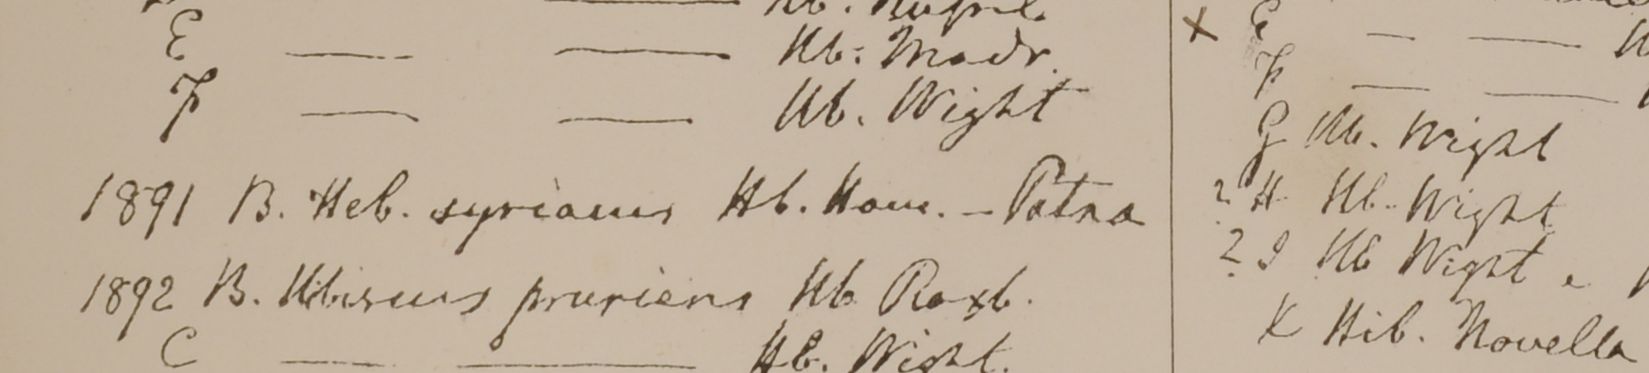 E — — Hb. Madr.
F — — Hb. Wight
1891 B. Heb. syriacus Hb. Ham. – Patna
1892 B. Hibiscus pruriens Hb Roxb.
C — — Hb. Wight.
x E — —
F — —
G Hb. Wight
? H Hb. Wight
? I Hb Wight
K Hib. Novella